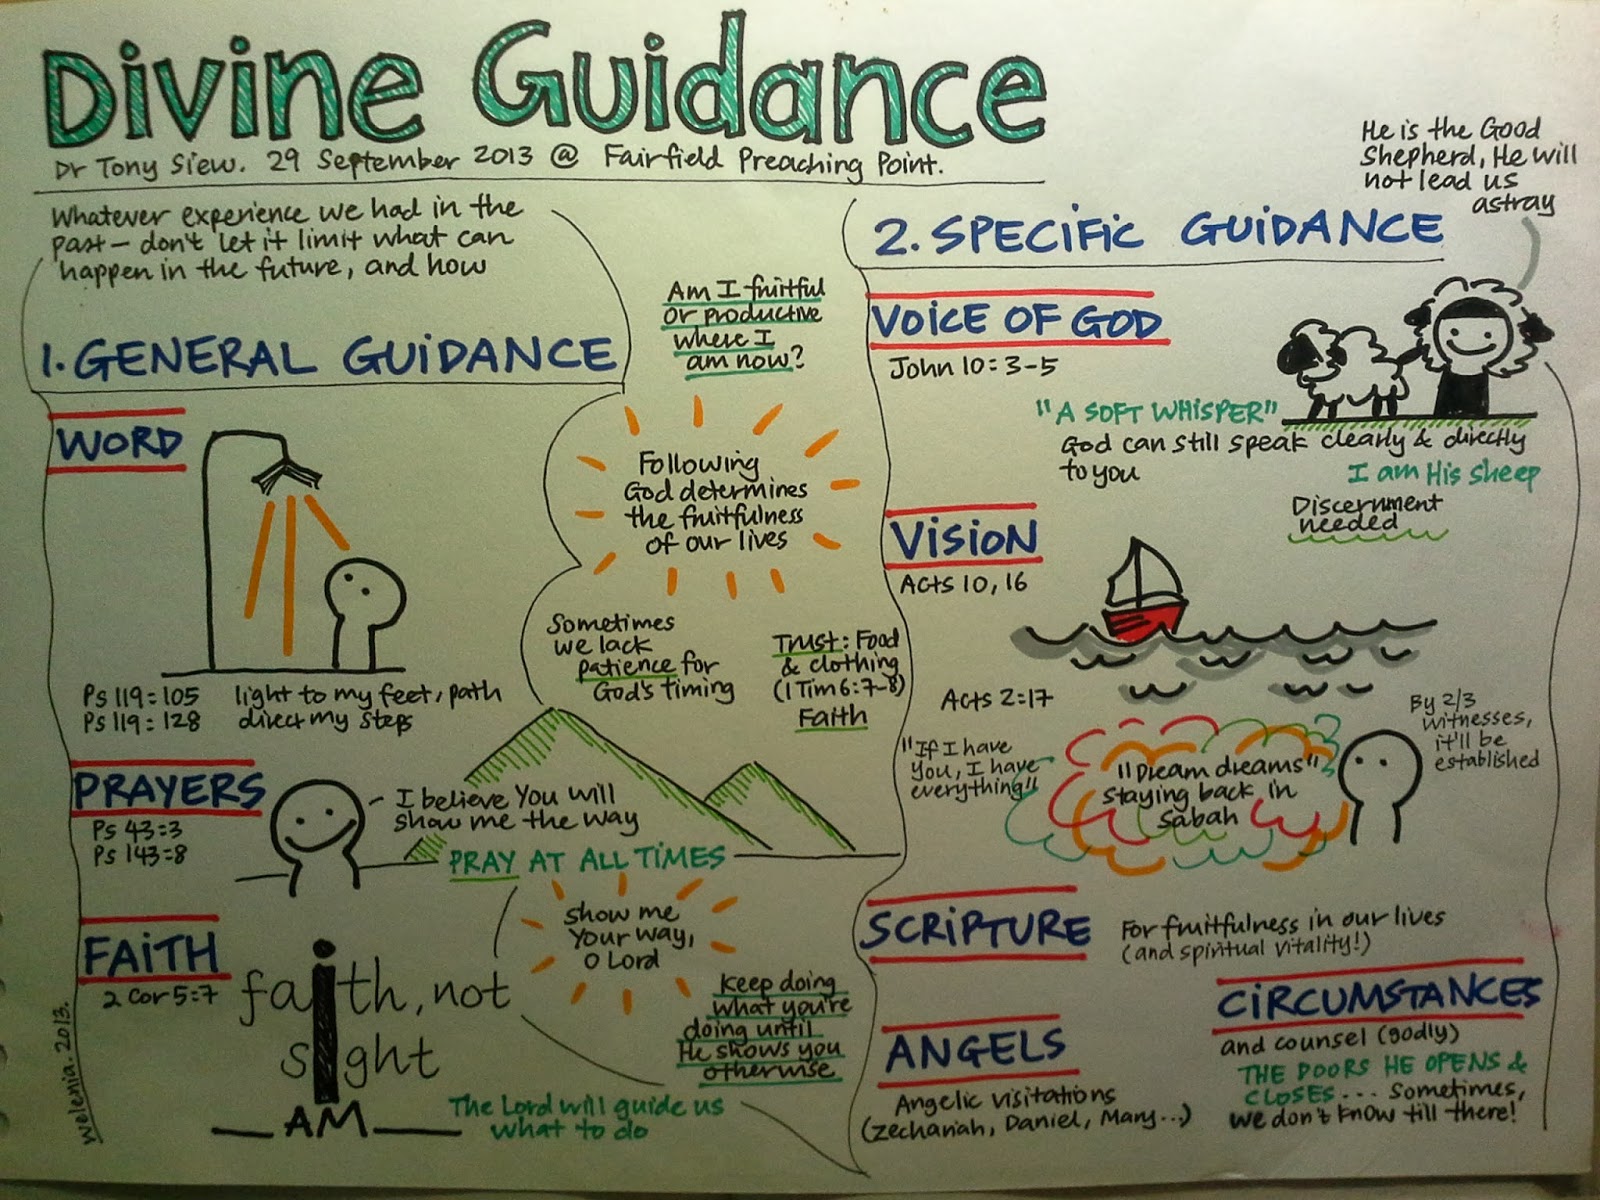 Divine Guidance
Dr Tony Siew. 29 September 2013 @ Fairfield Preaching Point.
Whatever experience we had in the
past - don't let it limit what can
happen in the future, and how
1. GENERAL GUIDANCE
WORD
Ps 119:105 light to my feet, path
Ps 119:128 direct my steps
PRAYERS
Ps 43:3
Ps 143:8
I believe You will
show me the way
PRAY AT ALL TIMES
FAITH
2 Cor 5:7
faith, not
sight
AM
Am I fruitful
or productive
where I
am now?
Following
God determines
the fruitfulness
of our lives
Sometimes
we lack
patience for
God's timing
Trust: Food
& clothing
(1 Tim 6:7-8)
Faith
show me
Your way,
O Lord
Keep doing
what you're
doing until
He shows you
otherwise
The Lord will guide us
what to do
welenia. 2013.
2. SPECIFIC GUIDANCE
He is the Good
Shepherd, He will
not lead us
astray
VOICE OF GOD
John 10:3-5
"A SOFT WHISPER"
God can still speak clearly & directly
to you
I am His sheep
Discernment
needed
VISION
Acts 10, 16
Acts 2:17
"If I have
You, I have
everything"
"Dream dreams"
staying back in
Sabah
By 2/3
witnesses,
it'll be
established
SCRIPTURE
For fruitfulness in our lives
(and spiritual vitality!)
ANGELS
Angelic visitations
(Zechariah, Daniel, Mary...)
CIRCUMSTANCES
and counsel (godly)
THE DOORS HE OPENS &
CLOSES... Sometimes,
we don't know till there!